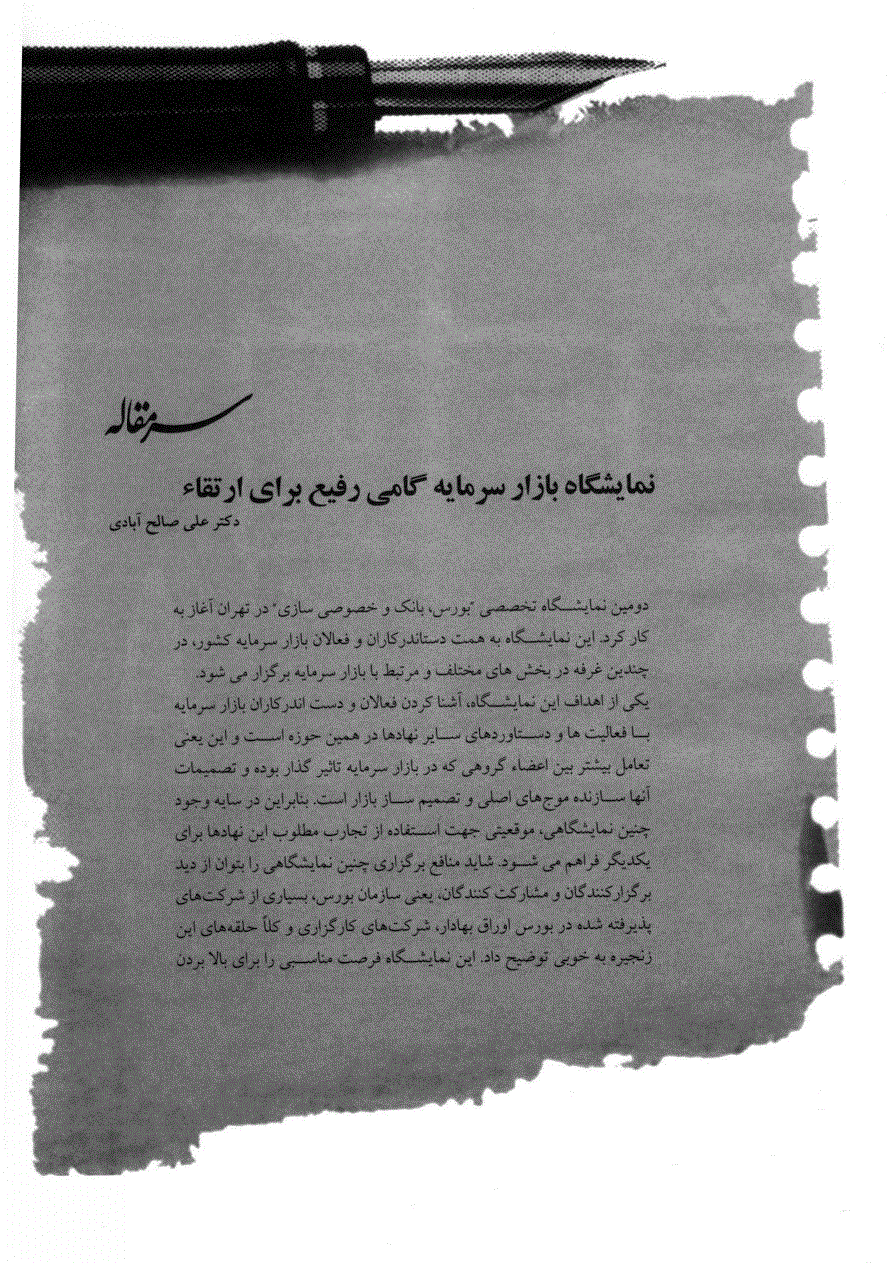 سرمقاله
نمایشگاه بازار سرمایه گامی رفیع برای ارتقاء
دکتر علی صالح آبادی
دومین نمایشگاه تخصصی "بورس، بانک و خصوصی سازی" در تهران آغاز به
کار کرد. این نمایشگاه به همت دستاندرکاران و فعالان بازار سرمایه کشور، در
چندین غرفه در بخش های مختلف و مرتبط با بازار سرمایه برگزار می شود.
یکی از اهداف این نمایشگاه، آشنا کردن فعالان و دست اندرکاران بازار سرمایه
با فعالیت ها و دستاوردهای سایر نهادها در همین حوزه است و این یعنی
تعامل بیشتر بین اعضاء گروهی که در بازار سرمایه تاثیر گذار بوده و تصمیمات
آنها سازنده موج‌های اصلی و تصمیم ساز بازار است. بنابراین در سایه وجود
چنین نمایشگاهی، موقعیتی جهت استفاده از تجارب مطلوب این نهادها برای
یکدیگر فراهم می شود. شاید منافع برگزاری چنین نمایشگاهی را بتوان از دید
برگزارکنندگان و مشارکت کنندگان، یعنی سازمان بورس، بسیاری از شرکت‌های
پذیرفته شده در بورس اوراق بهادار، شرکت‌های کارگزاری و کلاً حلقه‌های این
زنجیره به خوبی توضیح داد. این نمایشگاه فرصت مناسبی را برای بالا بردن